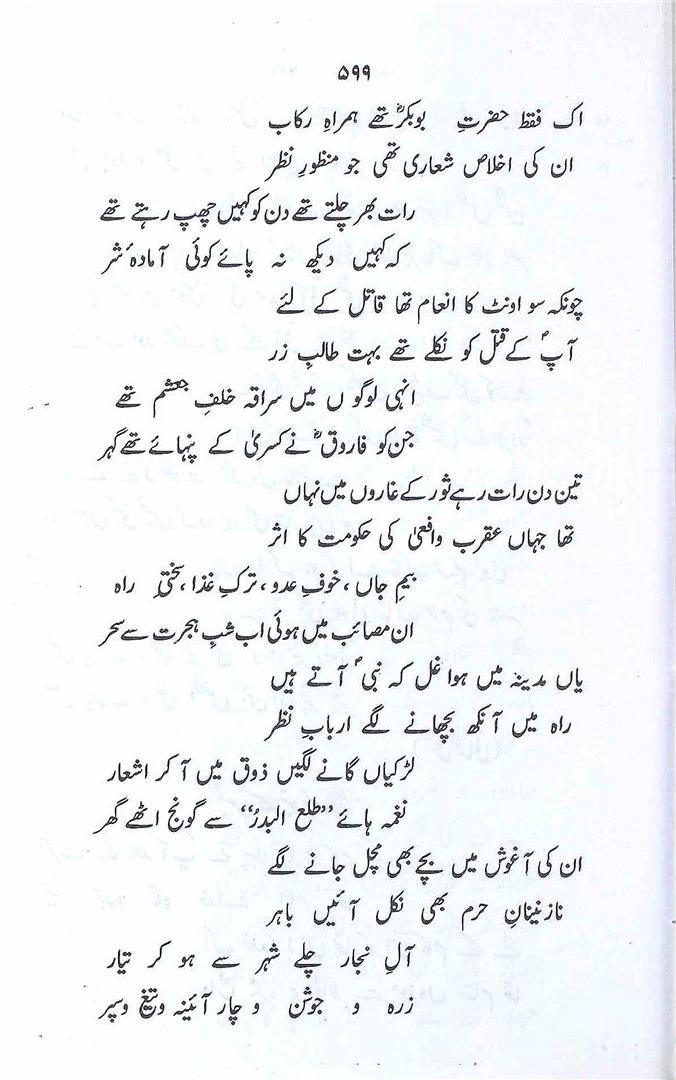 ۵۹۹
اک فقط حضرتِ بوبکرؓ تھے ہمراہِ رکاب
ان کی اخلاص شعاری تھی جو منظورِ نظر
رات بھر چلتے تھے دن کو کہیں چھپ رہتے تھے
کہ کہیں دیکھ نہ پائے کوئی آمادۂ شر
چونکہ سو اونٹ کا انعام تھا قاتل کے لئے
آپؐ کے قتل کو نکلے تھے بہت طالبِ زر
انہی لوگوں میں سراقہ خلفِ جعشم تھے
جن کو فاروقؓ نے کسریٰ کے پنہائے تھے گہر
تین دن رات رہے ثور کے غاروں میں نہاں
تھا جہاں عقرب واقعیٰ کی حکومت کا اثر
بیمِ جاں، خوفِ عدو، ترکِ غذا، سختیِ راہ
ان مصائب میں ہوئی اب شبِ ہجرت سے سحر
یاں مدینہ میں ہوا غل کہ نبیؐ آتے ہیں
راہ میں آنکھ بچھانے لگے اربابِ نظر
لڑکیاں گانے لگیں ذوق میں آ کر اشعار
نغمہ ہائے "طلع البدرُ" سے گونج اٹھے گھر
ان کی آغوش میں بچے بھی مچل جانے لگے
نازنینانِ حرم بھی نکل آئیں باہر
آلِ نجار چلے شہر سے ہو کر تیار
زرہ و جوشن و چار آئینہ و تیغ و سپر